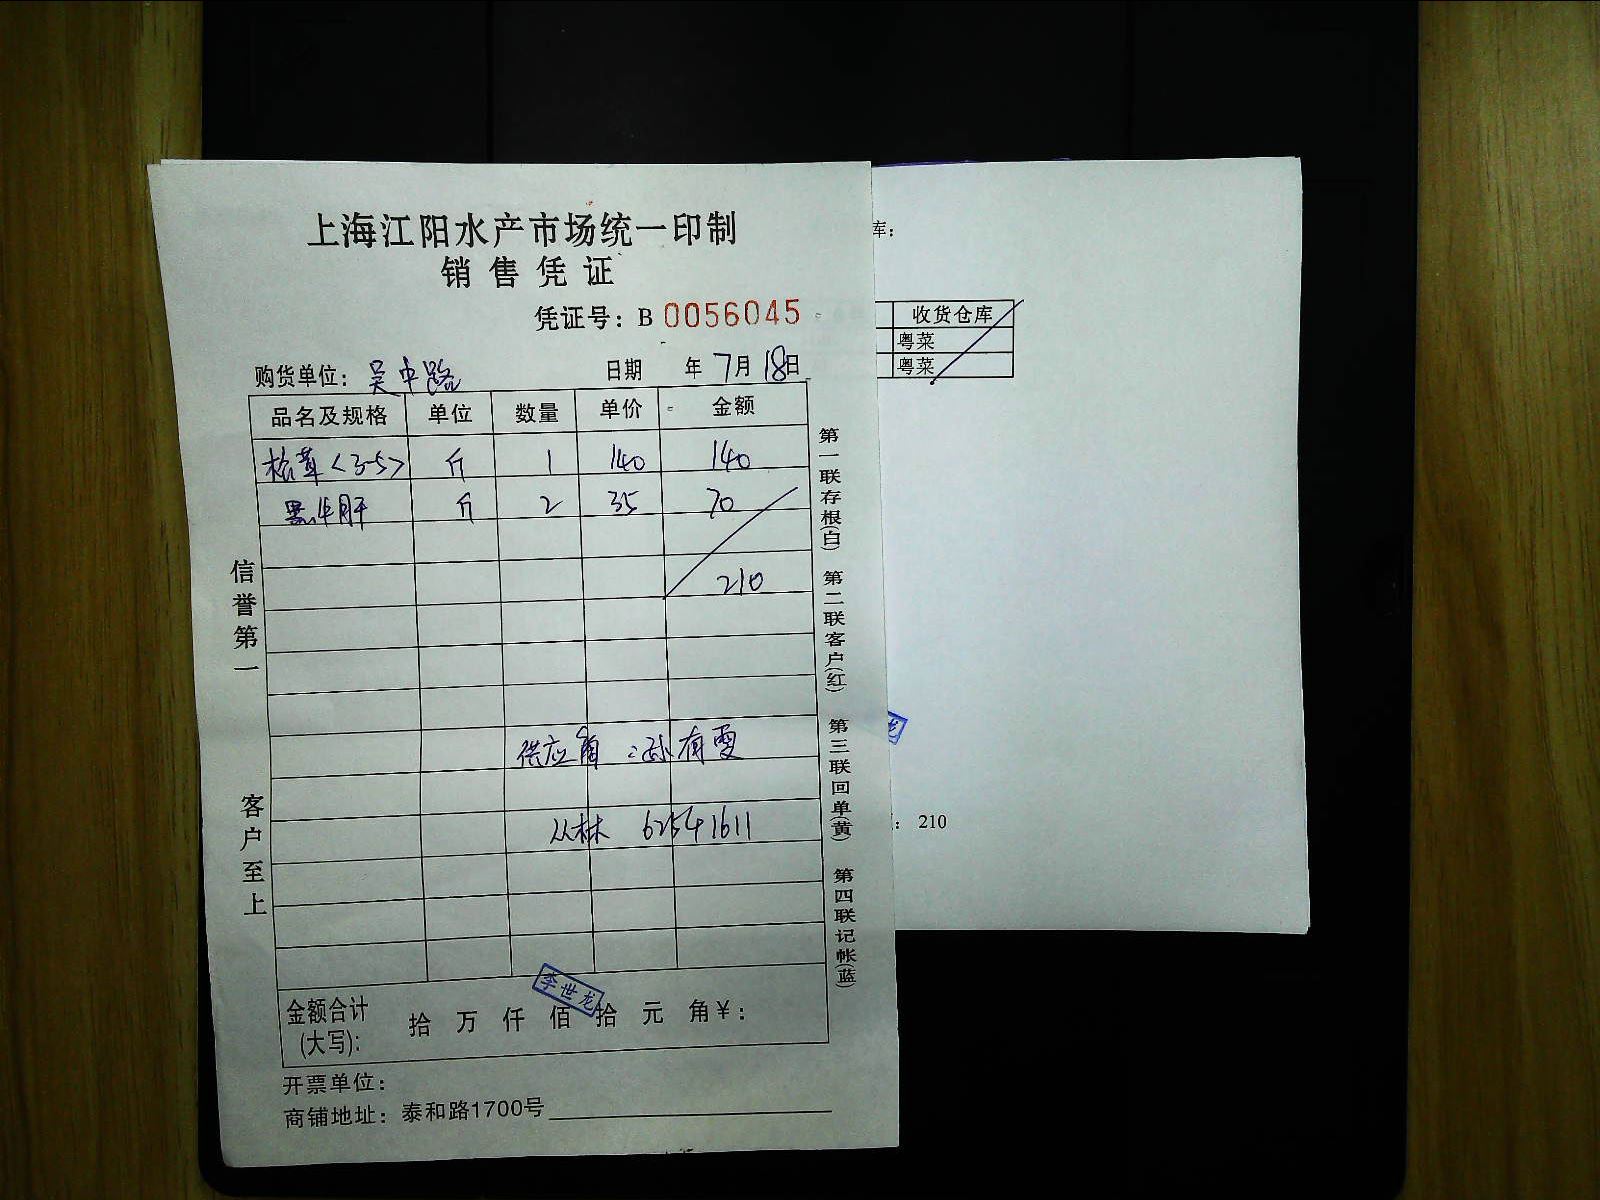 上海江阳水产市场统一印制
销售凭证
凭证号：B 0056045
购货单位：吴中路 日期 年 7月 18日
品名及规格 单位 数量 单价 金额
松茸<3-5> 斤 1 140 140
黑牛肝 斤 2 35 70
210
供应商：孙有雯
从林 62541611
金额合计(大写): 拾 万 仟 佰 拾 元 角￥:
李世龙
开票单位：
商铺地址：泰和路1700号
信誉第一 客户至上
第一联存根(白) 第二联客户(红) 第三联回单(黄) 第四联记帐(蓝)
库:
收货仓库
粤菜
粤菜
龙
: 210